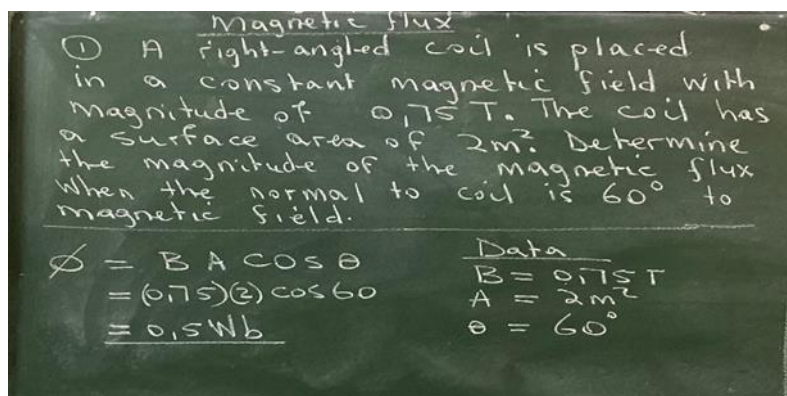 Magnetic flux
① A right-angled coil is placed
in a constant magnetic field with
magnitude of 0,75 T. The coil has
a surface area of 2m². Determine
the magnitude of the magnetic flux
When the normal to coil is 60° to
magnetic field.
Ø = B A cos θ
= (0,75)(2) cos 60
= 0,5 Wb
Data
B = 0,75 T
A = 2m²
θ = 60°